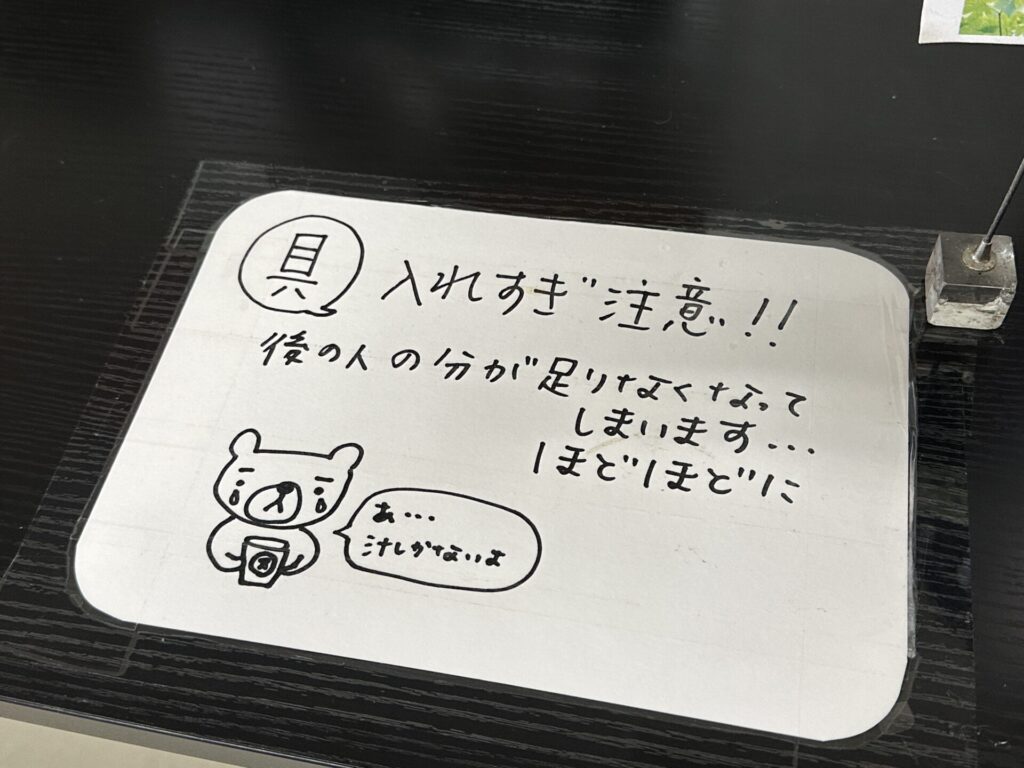 具 入れすぎ注意!!
後の人の分が足りなくなって
しまいます...
ほどほどに
あ...
汁しかないよ